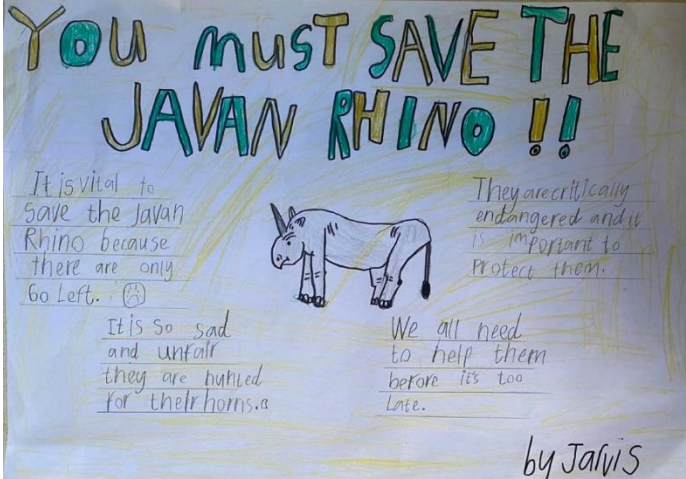 YOU MUST SAVE THE
JAVAN RHINO !!
It is vital to
save the Javan
Rhino because
there are only
60 left.
They are critically
endangered and it
is important to
protect them.
It is so sad
and unfair
they are hunted
for their horns.
We all need
to help them
before it's too
late.
by Jarvis